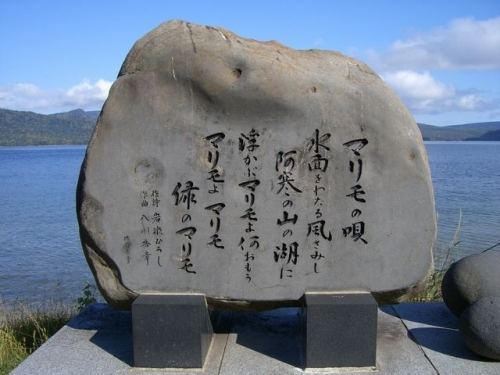 マリモの唄
水面をわたる風さみし
阿寒の山の湖に
浮かぶマリモよ何おもう
マリモよ マリモ
緑のマリモ
作詩 岩瀬ひろし
作曲 八洲秀章